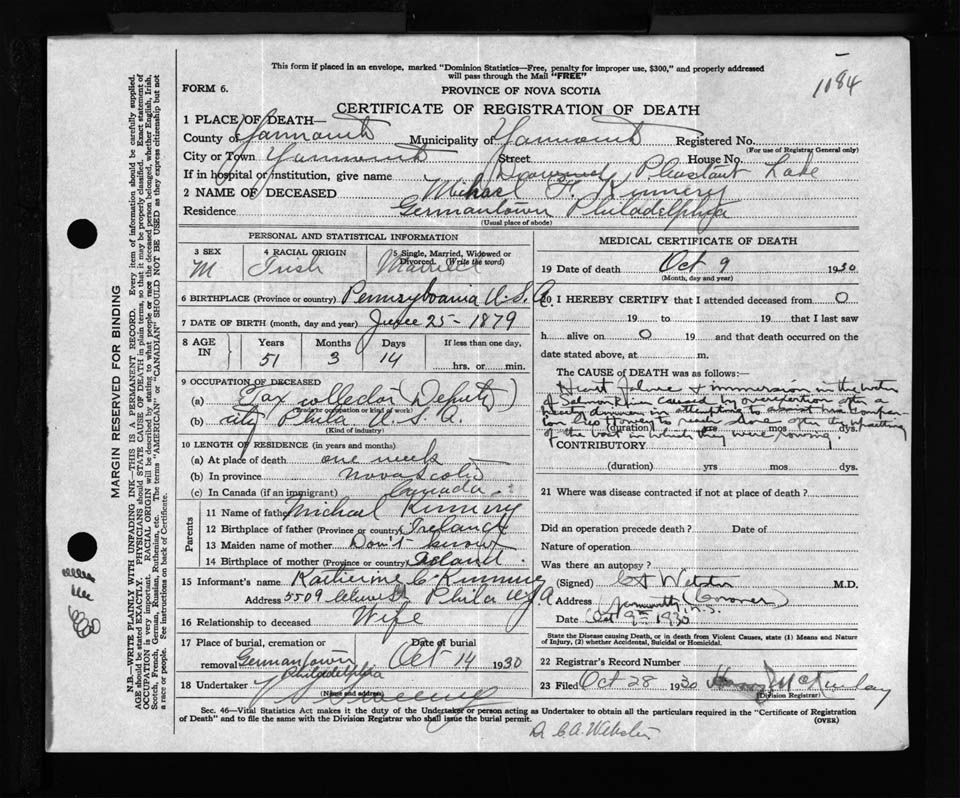 This form if placed in an envelope, marked "Dominion Statistics—Free, penalty for improper use, $300," and properly addressed
will pass through the Mail "FREE"
1084
FORM 6.
PROVINCE OF NOVA SCOTIA
CERTIFICATE OF REGISTRATION OF DEATH
1 PLACE OF DEATH—
County of Yarmouth Municipality of Yarmouth Registered No.
(For use of Registrar General only)
City or Town Yarmouth Street House No.
If in hospital or institution, give name Drowned Pleasant Lake
2 NAME OF DECEASED Michael F. Kinnery
Residence Germantown Philadelphia
(Usual place of abode)
PERSONAL AND STATISTICAL INFORMATION
3 SEX M
4 RACIAL ORIGIN Irish
5 Single, Married, Widowed or Divorced. (Write the word) Married
6 BIRTHPLACE (Province or country) Pennsylvania U.S.A.
7 DATE OF BIRTH (month, day and year) June 25 - 1879
8 AGE IN Years Months Days If less than one day,
51 3 14 hrs. or min.
9 OCCUPATION OF DECEASED
(a) Tax collector Deputy)
(Trade or occupation or kind of work)
(b) city Phila U.S.A.
(Kind of industry)
10 LENGTH OF RESIDENCE (in years and months)
(a) At place of death one week
(b) In province Nova Scotia
(c) In Canada (if an immigrant) Canada
Parents
11 Name of father Michael Kinnery
12 Birthplace of father (Province or country) Ireland
13 Maiden name of mother Don't know
14 Birthplace of mother (Province or country) Ireland
15 Informant's name Katherine C Kinnery
Address 5509 Phila U.S.A
16 Relationship to deceased Wife
17 Place of burial, cremation or removal Germantown Philadelphia
Date of burial Oct 14 1930
18 Undertaker
(Name and address)
MEDICAL CERTIFICATE OF DEATH
19 Date of death Oct 9 1930
(Month, day and year)
20 I HEREBY CERTIFY that I attended deceased from 0
19 to 19 that I last saw
h alive on 0 19 and that death occurred on the
date stated above, at m.
The CAUSE OF DEATH was as follows:—
Heart failure & immersion in the water
of Salmon River caused by overexertion after a
hearty dinner in attempting to assist his compan-
ion to reach shore after the upsetting
(duration) yrs mos dys.
of the boat in which they were rowing.
CONTRIBUTORY
(duration) yrs mos dys.
21 Where was disease contracted if not at place of death?
Did an operation precede death? Date of
Nature of operation
Was there an autopsy?
(Signed) C A Webster M.D.
Address Yarmouth N.S. (Coroner)
Date Oct 9th 1930
State the Disease causing Death, or in death from Violent Causes, state (1) Means and Nature
of Injury, (2) whether Accidental, Suicidal or Homicidal.
22 Registrar's Record Number
23 Filed Oct 28 1930 McKinlay
(Division Registrar)
Sec. 46—Vital Statistics Act makes it the duty of the Undertaker or person acting as Undertaker to obtain all the particulars required in the "Certificate of Registration
of Death" and to file the same with the Division Registrar who shall issue the burial permit.
(OVER)
Dr C.A. Webster
MARGIN RESERVED FOR BINDING
N.B.—WRITE PLAINLY WITH UNFADING INK—THIS IS A PERMANENT RECORD. Every item of information should be carefully supplied.
AGE should be stated EXACTLY. PHYSICIANS should STATE CAUSE OF DEATH in plain terms, so that it may be properly classified. Exact statement of
OCCUPATION is very important. RACIAL ORIGIN will be described by stating to what people or race the deceased person belonged, whether English, Irish,
Scotch, French, German, Russian, Ruthenian, etc. The terms "AMERICAN" or "CANADIAN" SHOULD NOT BE USED as they express citizenship but not
a race or people. See instructions on back of Certificate.